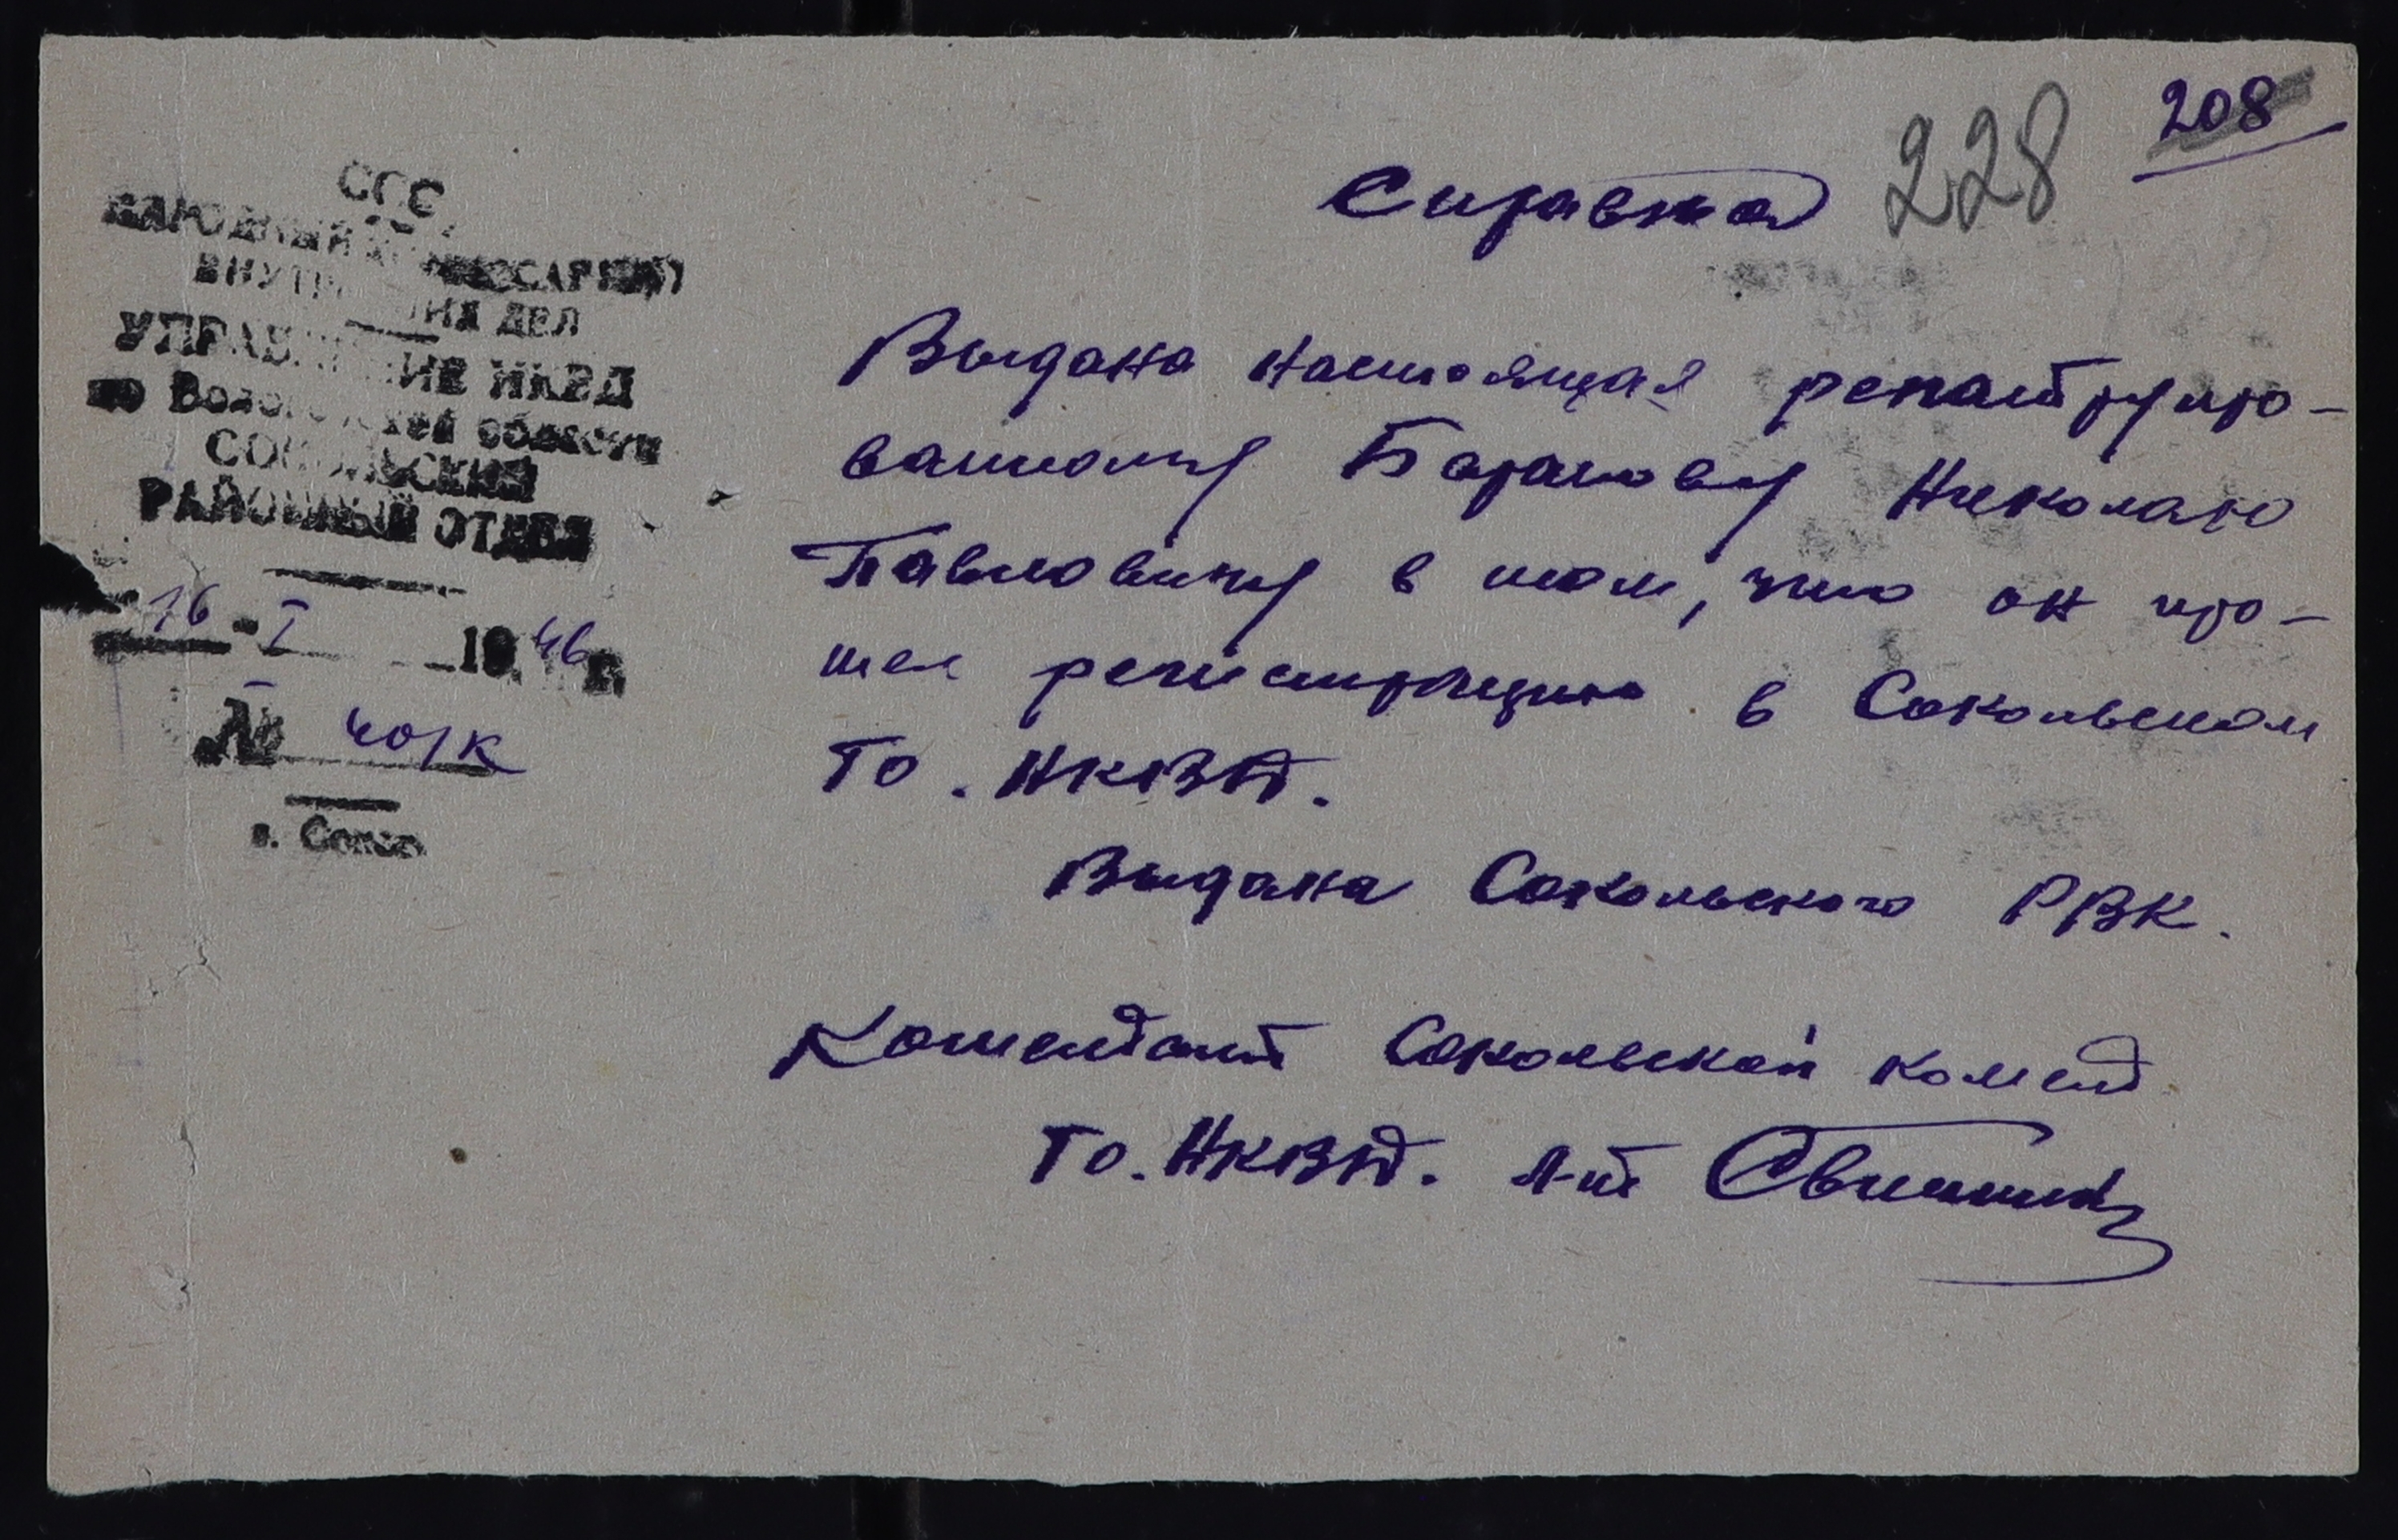 208
228
Справка
СССР
НАРОДНЫЙ КОМИССАРИАТ
ВНУТРЕННИХ ДЕЛ
УПРАВЛЕНИЕ НКВД
по Вологодской области
СОКОЛЬСКИЙ
РАЙОННЫЙ ОТДЕЛ
16 - I 1946 г.
№ 40/к
г. Сокол
Выдана настоящая репатрииро-
ванному Баранову Николаю
Павловичу в том, что он про-
шел регистрацию в Сокольском
ГО. НКВД.
Выдана Сокольского РВК.
Комендант Сокольской коменд
ГО. НКВД. л-нт